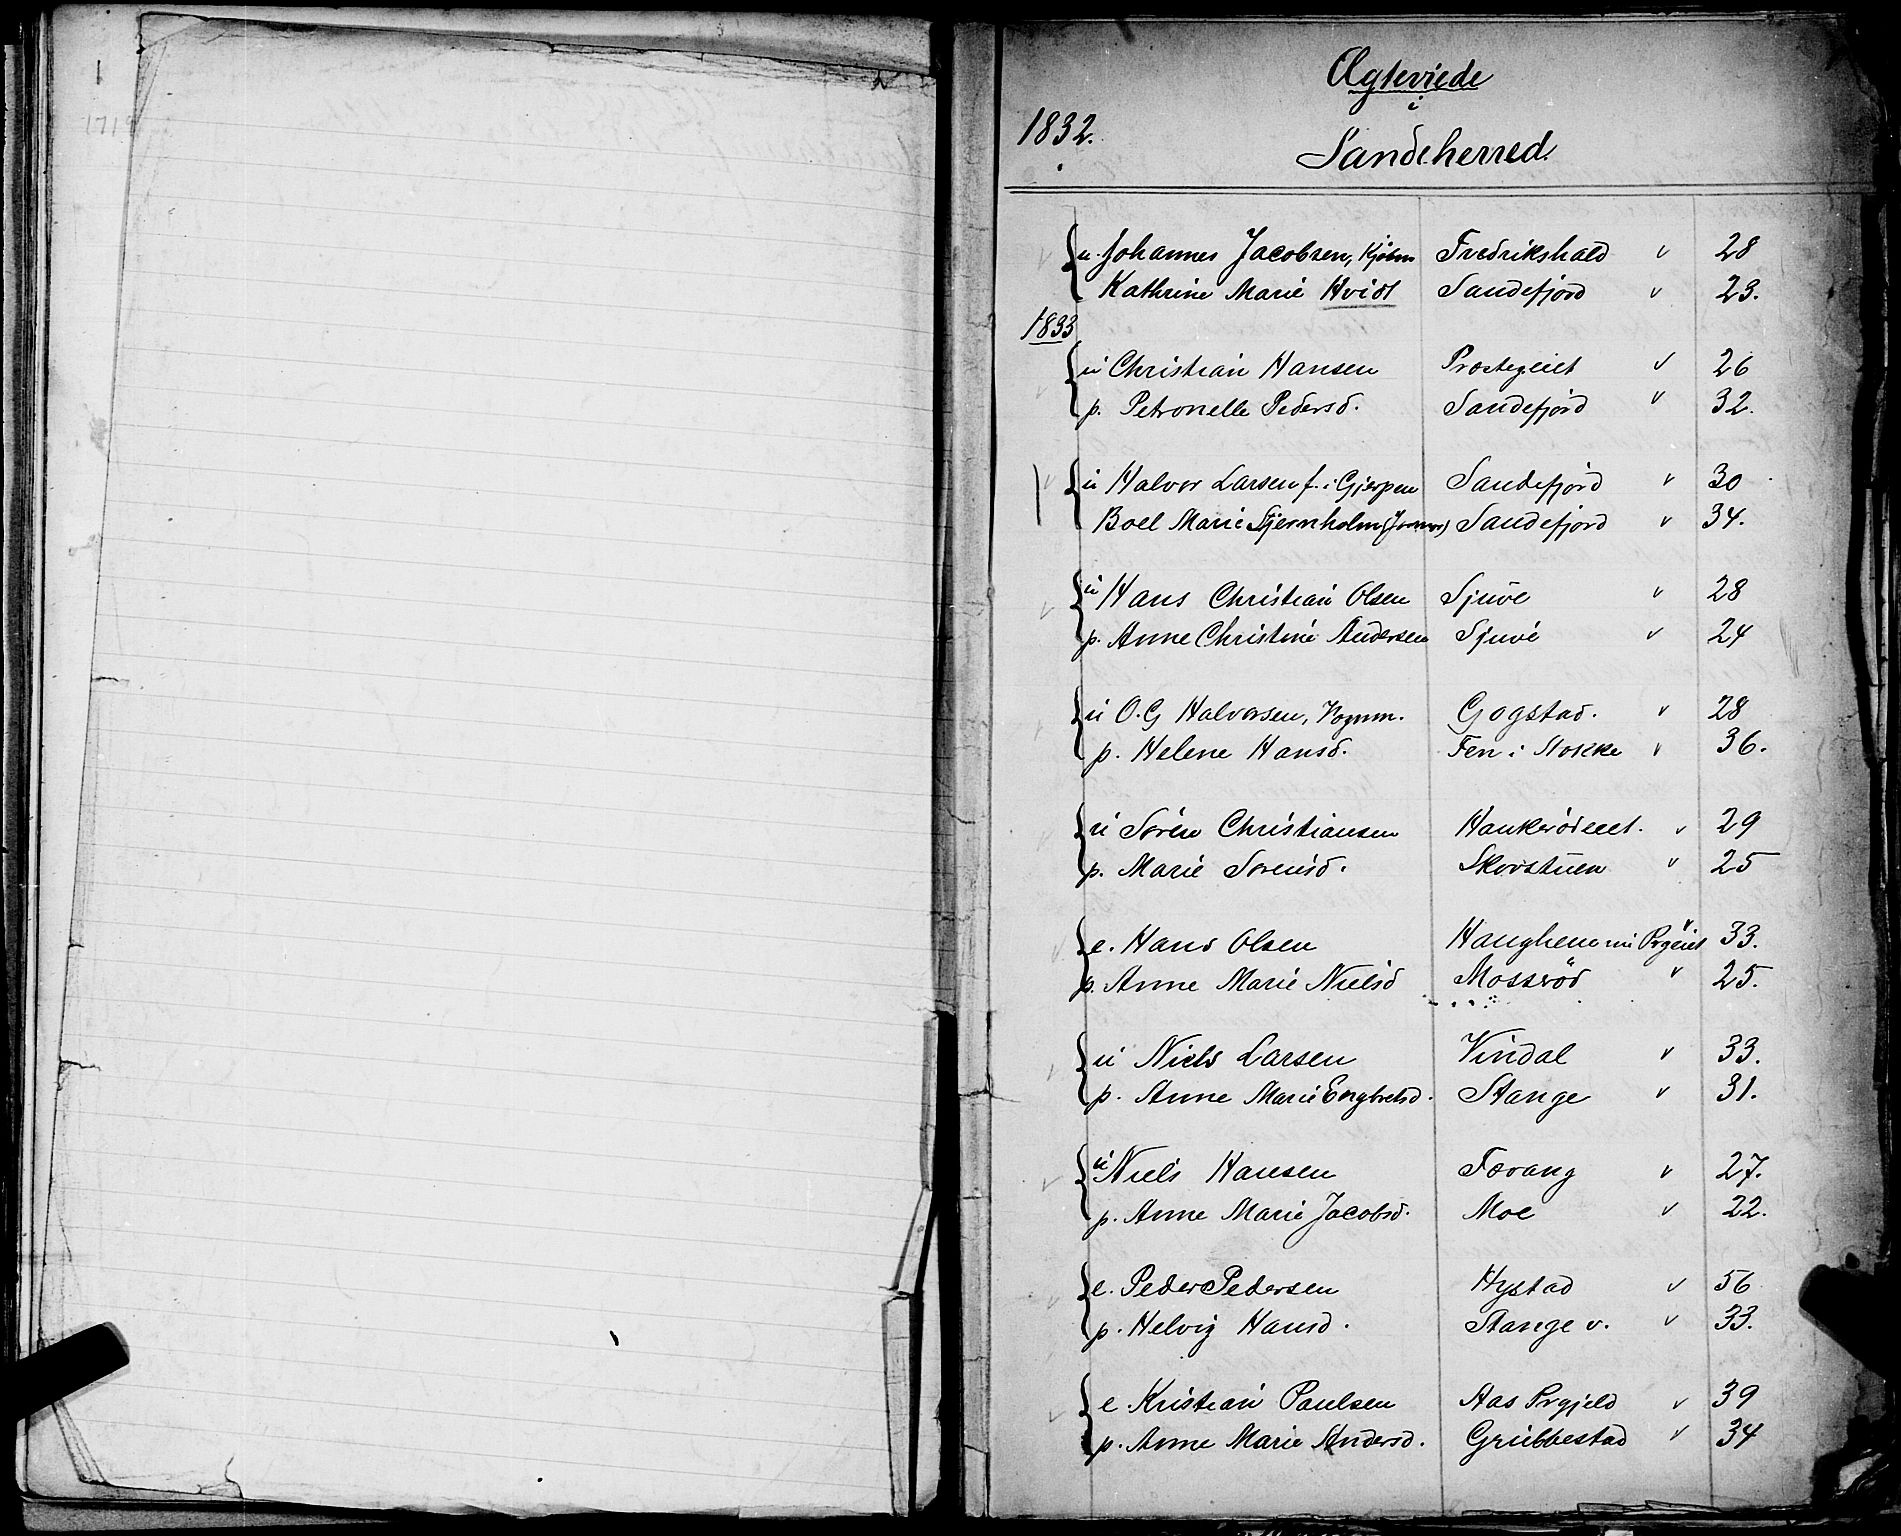 Ægteviede
i
1832.
Sandeherred.
u. Johannes Jacobsen, Kjöbm Fredrikshald v 28
Kathrine Marie Hvidt Sandefjord v 23.
1833
u Christian Hansen Prestegeiet v 26
p. Petronelle Pedersd. Sandefjord v 32.
u Halvor Larsen f. i Gjerpen Sandefjord v 30
Boel Marie Stjernholm Sandefjord v 34.
u Hans Christian Olsen Sjuve v 28
p. Anne Christine Andersen Sjuve v 24
u O. G Halvorsen, Vognm. Gogstad. v 28
p. Helene Hansd. Fen i Stokke v 36.
u Sören Christiansen Haukerödeiet. v 29
p. Marie Sorensd. Skorstuen v 25
e. Hans Olsen Haughem Prgeiet v 33.
p. Anne Marie Nielsd Mosseröd v 25.
u Niels Larsen Vindal v 33.
p. Anne Marie Engbretsd. Stange v 31.
u Niels Hansen Forang v 27.
p. Anne Marie Jacobsd. Moe v 22.
e. Peder Pedersen Hystad v 56
p. Helvig Hansd. Stange v. v 33.
e Kristian Paulsen Aas Prgjeld v 39
p. Anne Marie Andersd. Grubbestad v 34